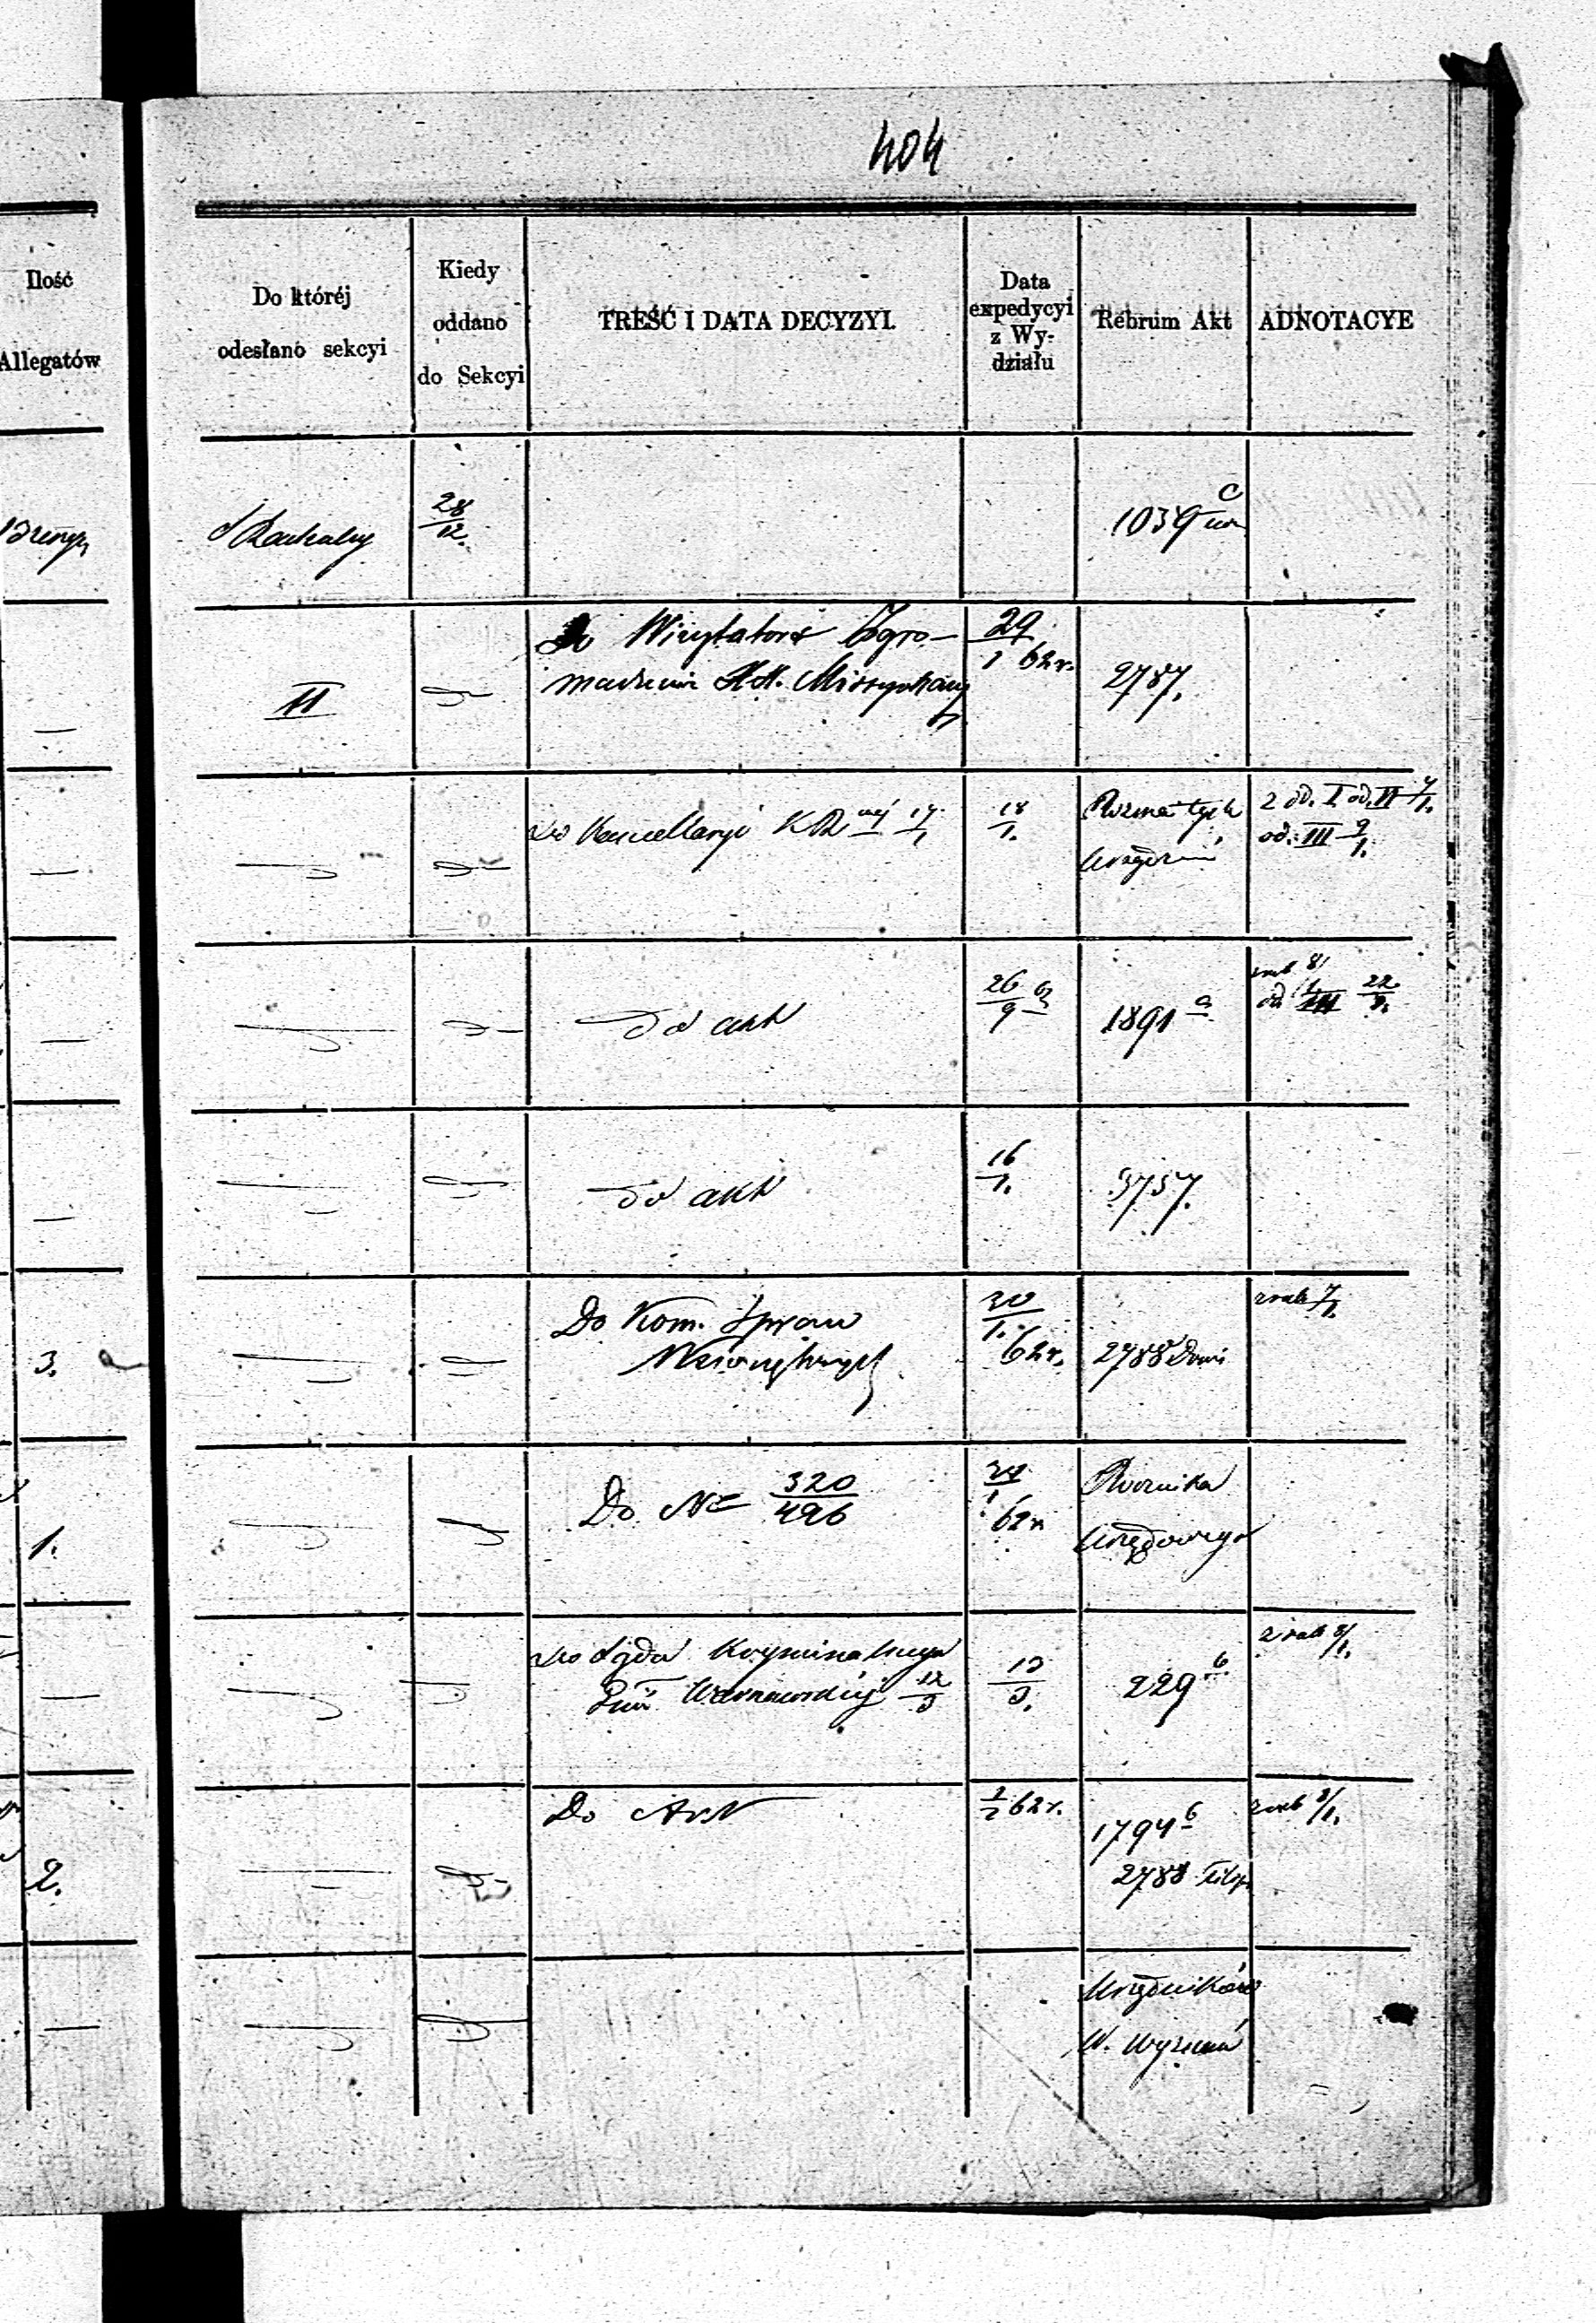 404
Ilość
Allegatów
Do któréj
odesłano sekcyi
Kiedy
oddano
do Sekcyi
TREŚĆ I DATA DECYZYI.
Data
expedycyi
z Wy-
działu
Rebrum Akt
ADNOTACYE
28/12.
1039
Do Wizytatora Zgro-
madzenia XX. Missyonarzy
29/1 62 r.
II
2787.
Do Kancellaryi KR 17/1
18/1.
Rozmaitych
Urządzeń
2 od. I od. II 7/1.
od. III 9/1.
do akt
26/9 62
1891 a
od III 22/9.
do akt
16/1.
3757.
3.
Do Kom. Spraw
Wewnętrznych
30/1. 62 r.
2788
1.
Do N 320/496
62 r
Rocznika
Urzędowego
Do Sądu Kryminalnego
Warszawskiéj 12/3
13/3.
229 b
2.
Do Akt
62 r.
1794 b
2788
Urzędników
W. Wyznań